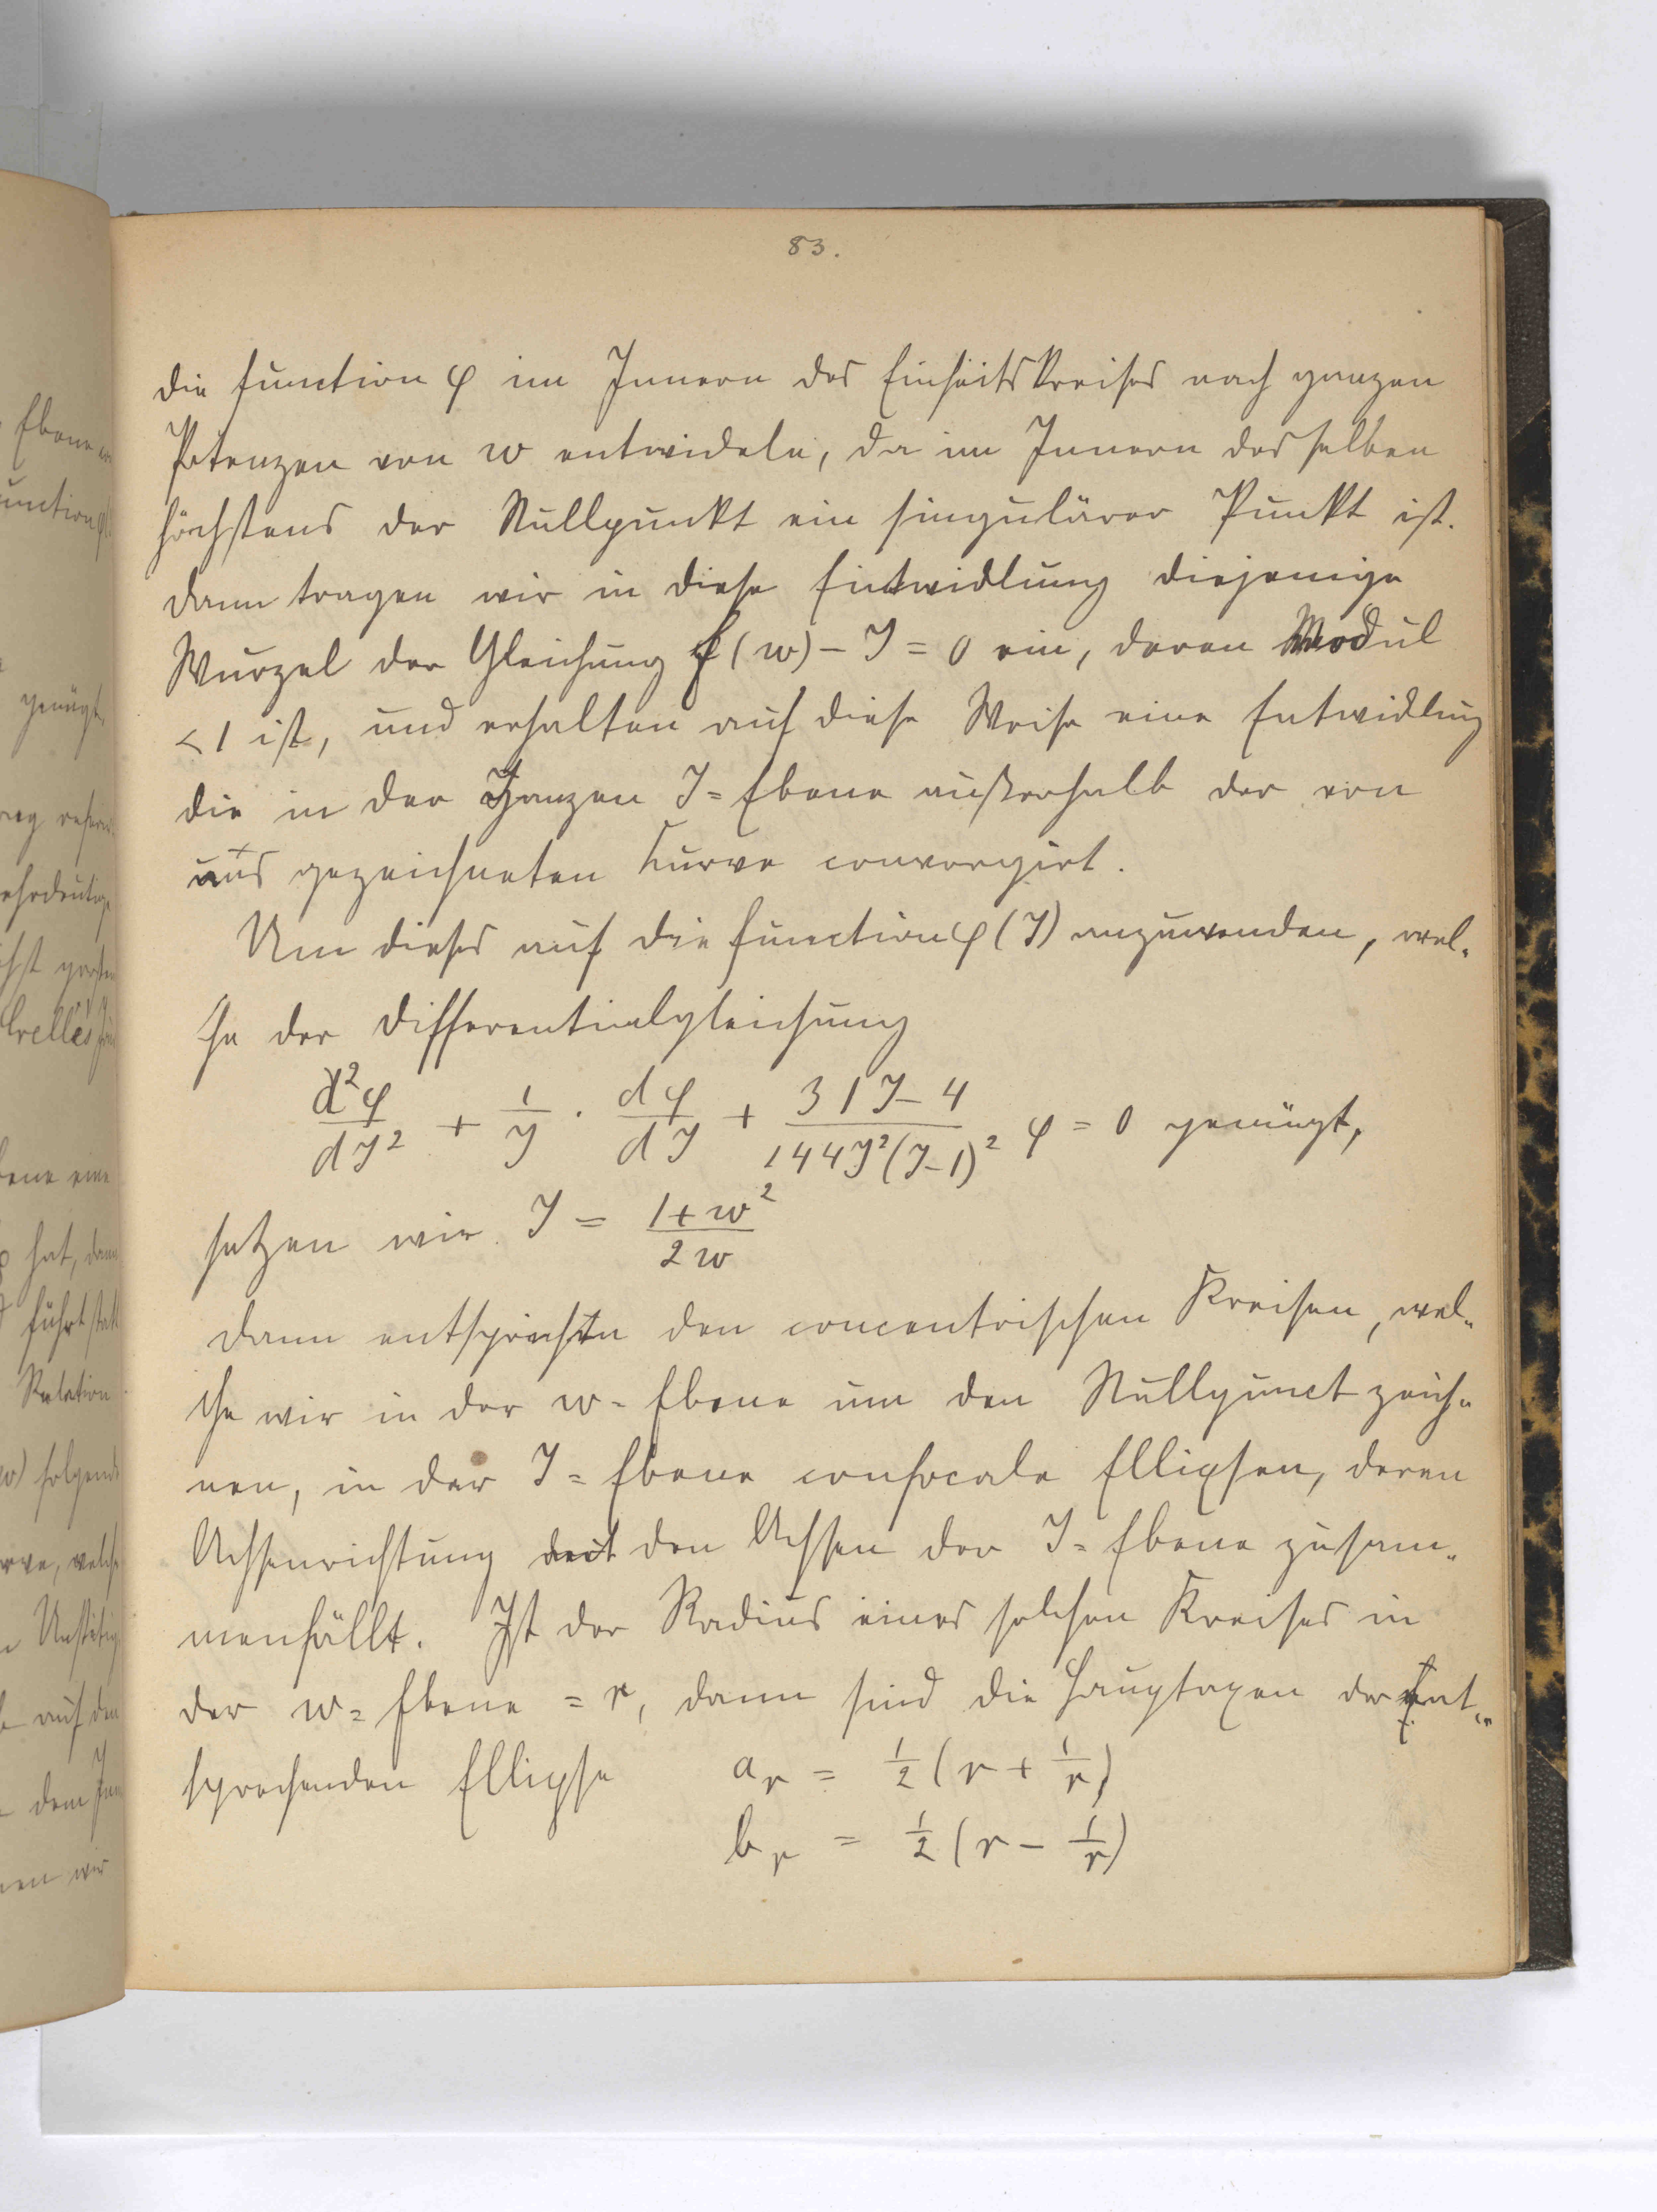 83.
die Function φ im Innern des Einheitskreises nach ganzen
Potenzen von w entwickeln, da im Innern desselben
höchstens der Nullpunkt ein singulärer Punkt ist.
Dann tragen wir in diese Entwicklung diejenige
Wurzel der Gleichung f(w) - J = 0 ein, deren Modul
< 1 ist, und erhalten auf diese Weise eine Entwicklung
die in der ganzen J=Ebene außerhalb der von
uns gezeichneten Curve convergirt.
Um dieses auf die Function φ(J) anzuwenden, wel-
che der Differentialgleichung
d²φ/dJ² + 1/J · dφ/dJ + (31J-4)/(144J²(J-1)²) φ = 0 genügt,
setzen wir J = (1+w²)/(2w)
Dann entsprechen den concentrischen Kreisen, wel-
che wir in der w=Ebene um den Nullpunct zeich-
nen, in der J=Ebene confocale Ellipsen, deren
Achsenrichtung mit den Achsen der J=Ebene zusam-
menfällt. Ist der Radius eines solchen Kreises in
der w=Ebene = r, dann sind die Hauptaxen der ent-
sprechenden Ellipse a_r = ½(r + 1/r)
b_r = ½(r - 1/r)